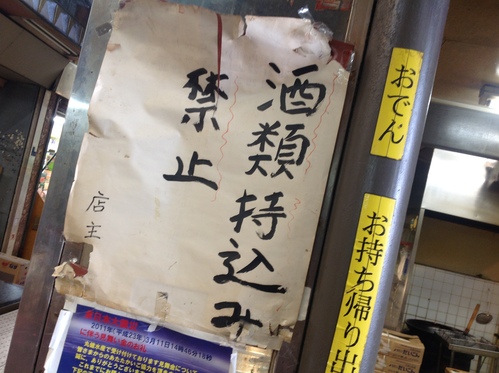 酒類持込み
禁止
店主
おでん
お持ち帰り出
2011年(平成23年)3月11日14時46分18秒